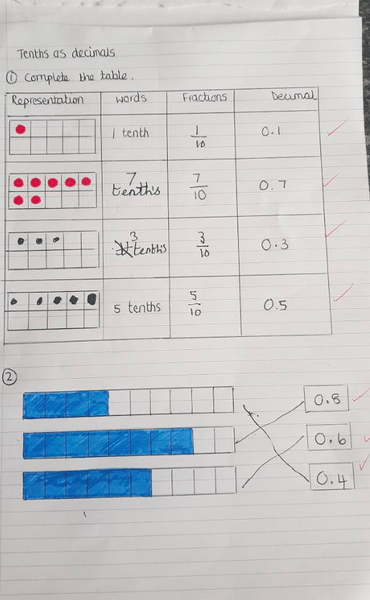 Tenths as decimals
① Complete the table.
Representation Words Fractions Decimal
1 tenth 1/10 0.1
7 tenths 7/10 0.7
3 tenths 3/10 0.3
5 tenths 5/10 0.5
②
0.8
0.6
0.4